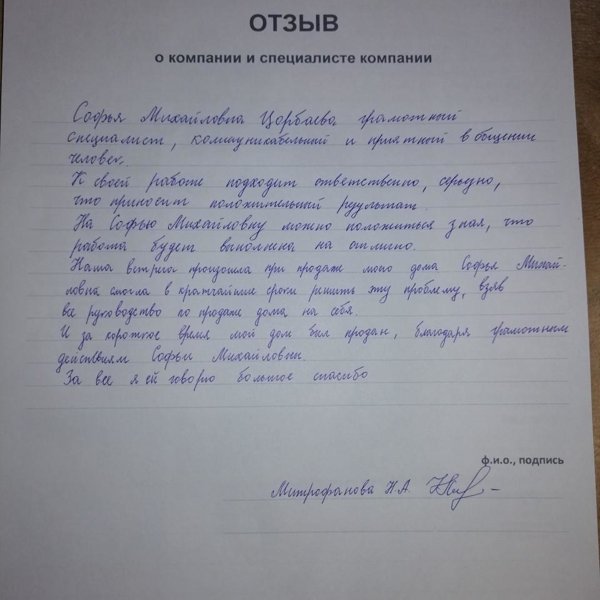 ОТЗЫВ
о компании и специалисте компании
Софья Михайловна Цорбаева грамотный
специалист, коммуникабельный и приятный в общении
человек.
К своей работе подходит ответственно, серьезно,
что приносит положительный результат.
На Софью Михайловну можно положиться зная, что
работа будет выполнена на отлично.
Наша встреча произошла при продаже моего дома Софья Михай-
ловна смогла в кратчайшие сроки решить эту проблему, взяв
все руководство по продаже дома на себя.
И за короткое время мой дом был продан, благодаря грамотным
действиям Софьи Михайловны.
За все я ей говорю большое спасибо
ф.и.о., подпись
Митрофанова Н.А.